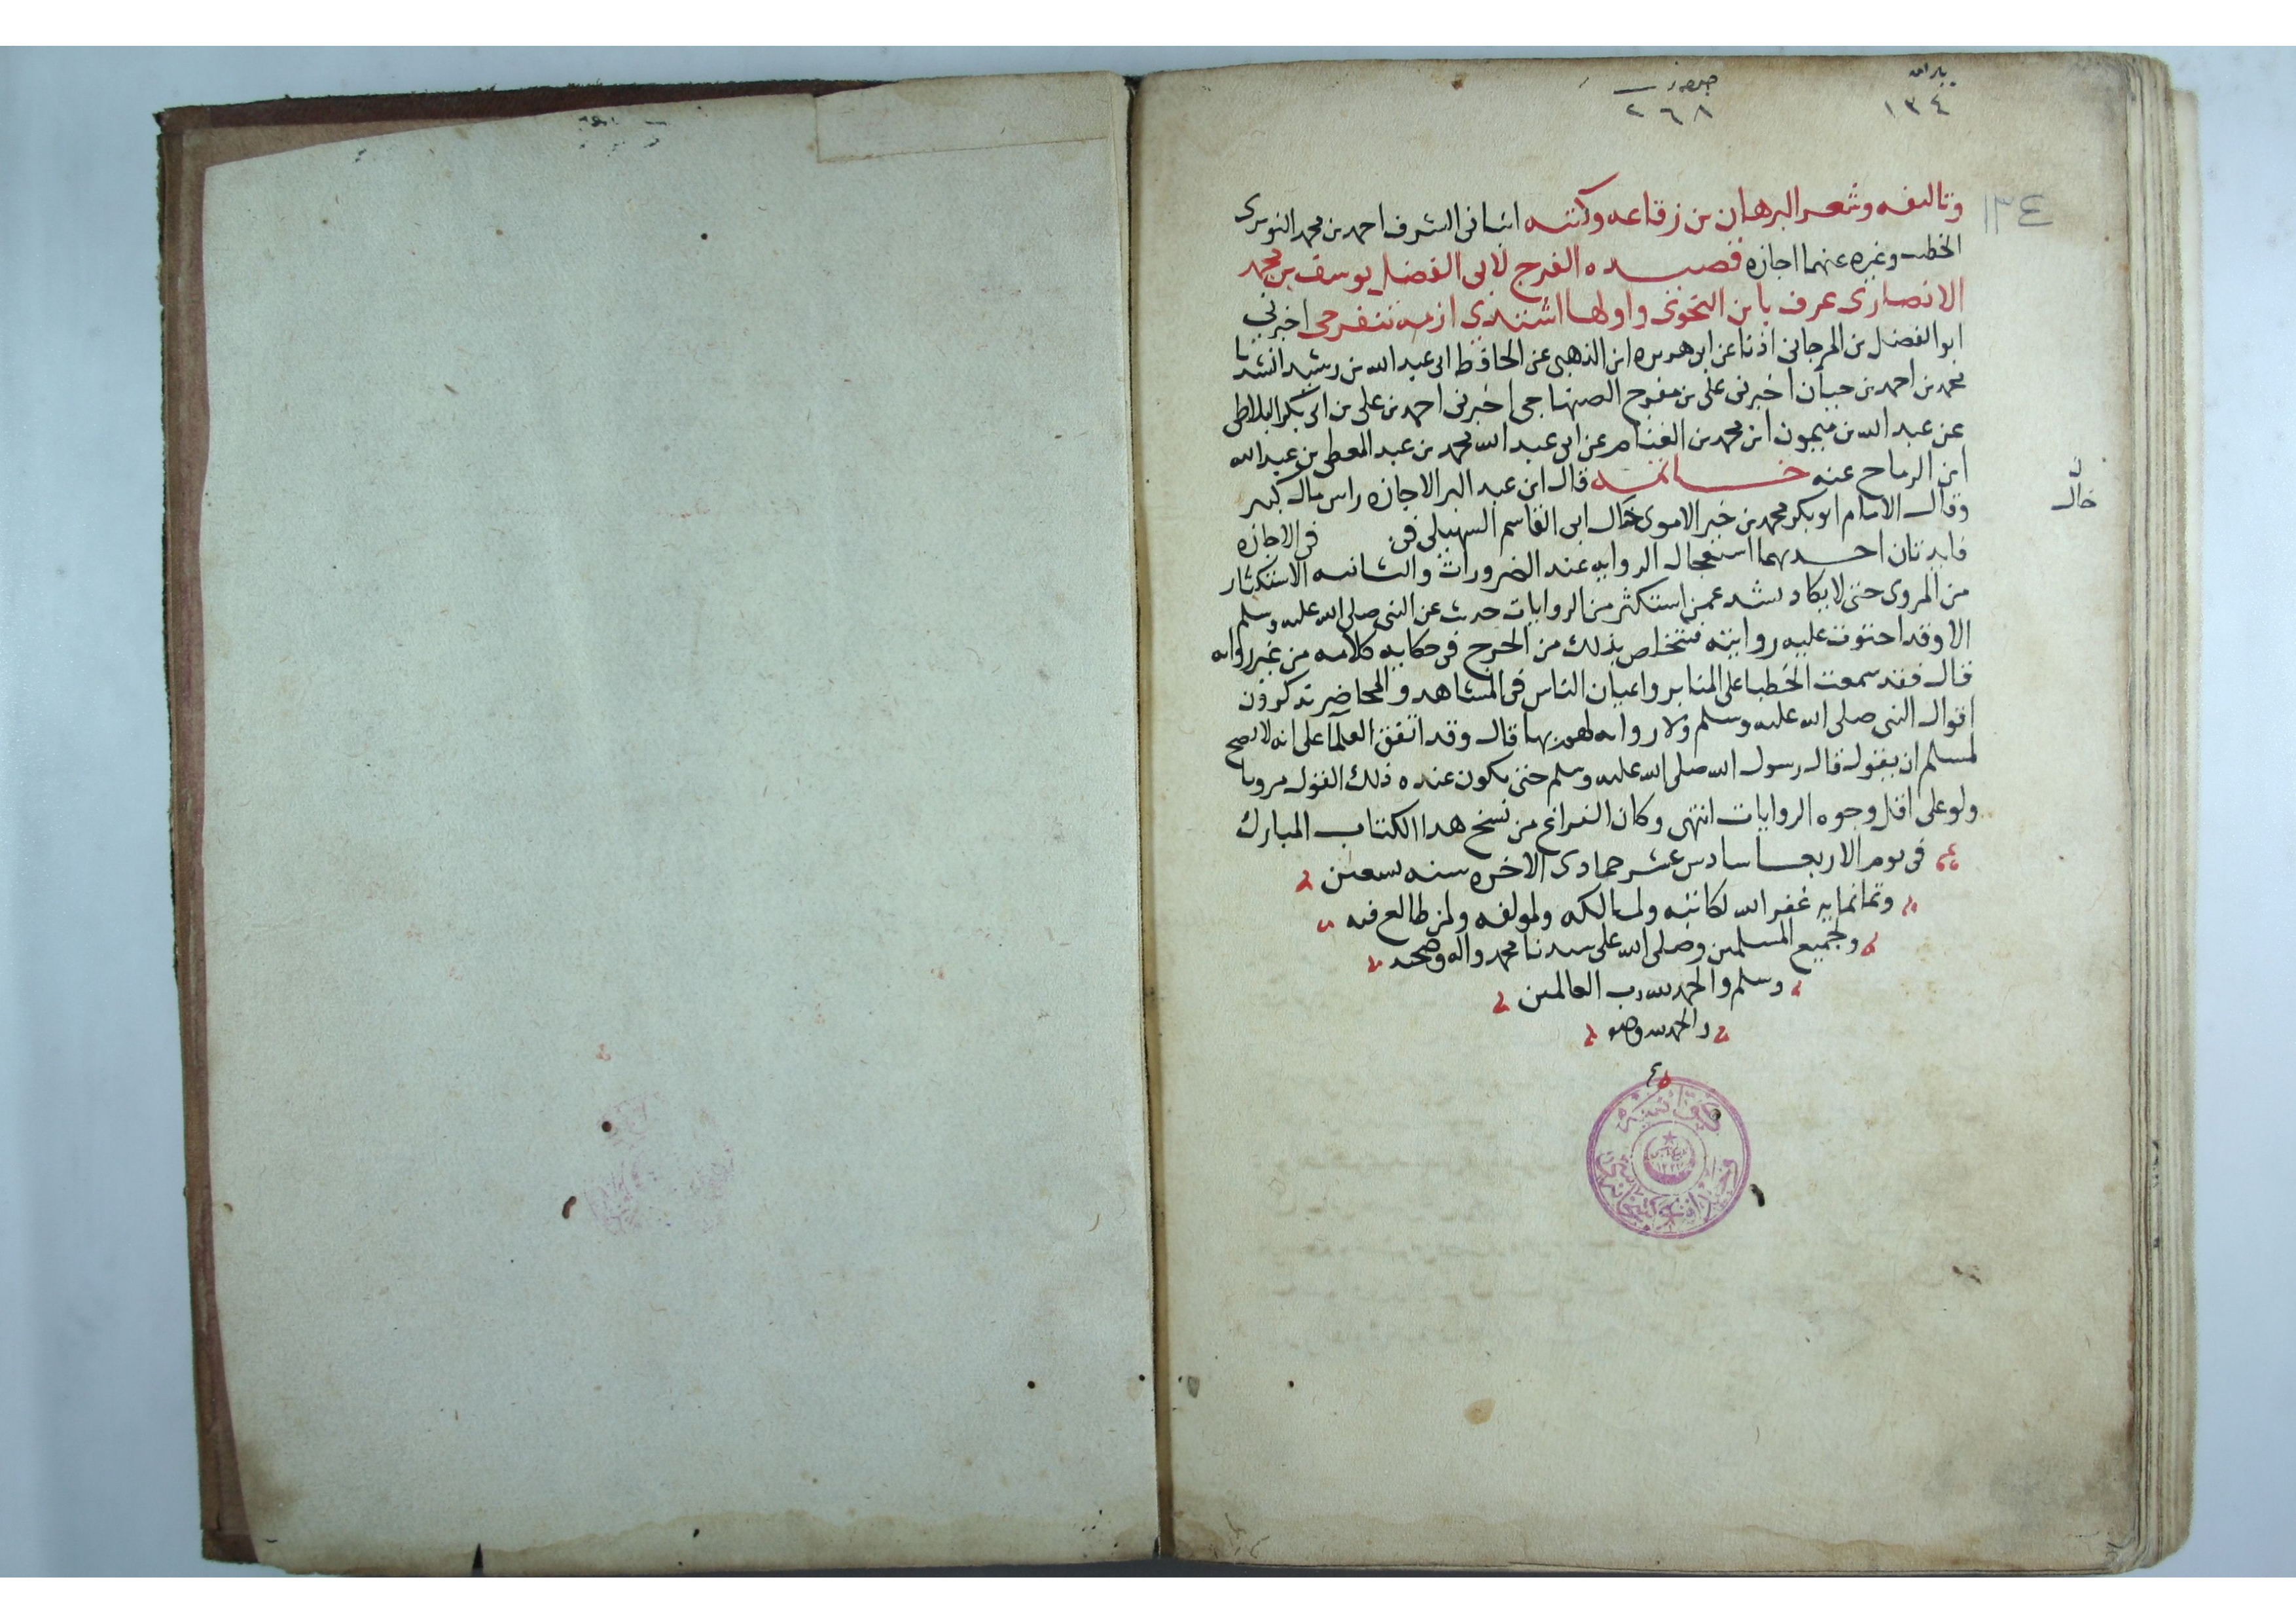 ١٣٤
٢٦٨
١٣٤
وتاليفه وشعر البرهان بن زقاعه وكتبه انبانى الشرف احمد بن محمد النويرى
الخطيب وغيره عنهما اجازه قصيده الفرج لابى الفضل يوسف بن محمد
الانصارى عرف بابن النحوى واولها اشتدى ازمه تنفرجى اخبرنى
ابو الفضل بن المرجانى اذنا عن ابى هريره ابن الذهبى عن الحافظ ابى عبد الله بن رشيد انشدنا
محمد بن احمد بن حيان اخبرنى على بن مفتوح الصنهاجى اخبرنى احمد بن على بن ابى بكر البلاطى
عن عبد الله بن ميمون ابن محمد بن الغنام عن ابى عبد الله محمد بن عبد المعطى بن عبد الله
ابن الرماح عنه خاتمه قال ابن عبد البر الاجازه راس مال كبير
وقال الامام ابو بكر محمد بن خير الاموى خال ابى القاسم السهيلى فى فى الاجازه
خال
فايدتان احديهما استعجال الروايه عند الضرورات والثانيه الاستكثار
من المروى حتى لا يكاد يشد عمن استكثر من الروايات حديث عن النبى صلى الله عليه وسلم
الا وقد احتوت عليه روايته فتخلص بذلك من الحرج فى حكايه كلامه من غير روايه
قال فقد سمعت الخطبا على المنابر واعيان الناس فى المشاهد والمحاضر تذكرون
اقوال النبى صلى الله عليه وسلم ولا روايه لهم بها قال وقد اتفق العلمآ على انه لا يصح
لمسلم ان يقول قال رسول الله صلى الله عليه وسلم حتى يكون عنده ذلك القول مرويا
ولو على اقل وجوه الروايات انتهى وكان الفراغ من نسخ هدا الكتاب المبارك
فى يوم الاربعا سادس عشر جمادى الاخره سنه تسعين
وثمانمايه غفر الله لكاتبه ولمالكه ولمولفه ولمن طالع فيه
ولجميع المسلمين وصلى الله على سيدنا محمد واله وصحبه
وسلم والحمد لله رب العالمين
والحمد لله وحده